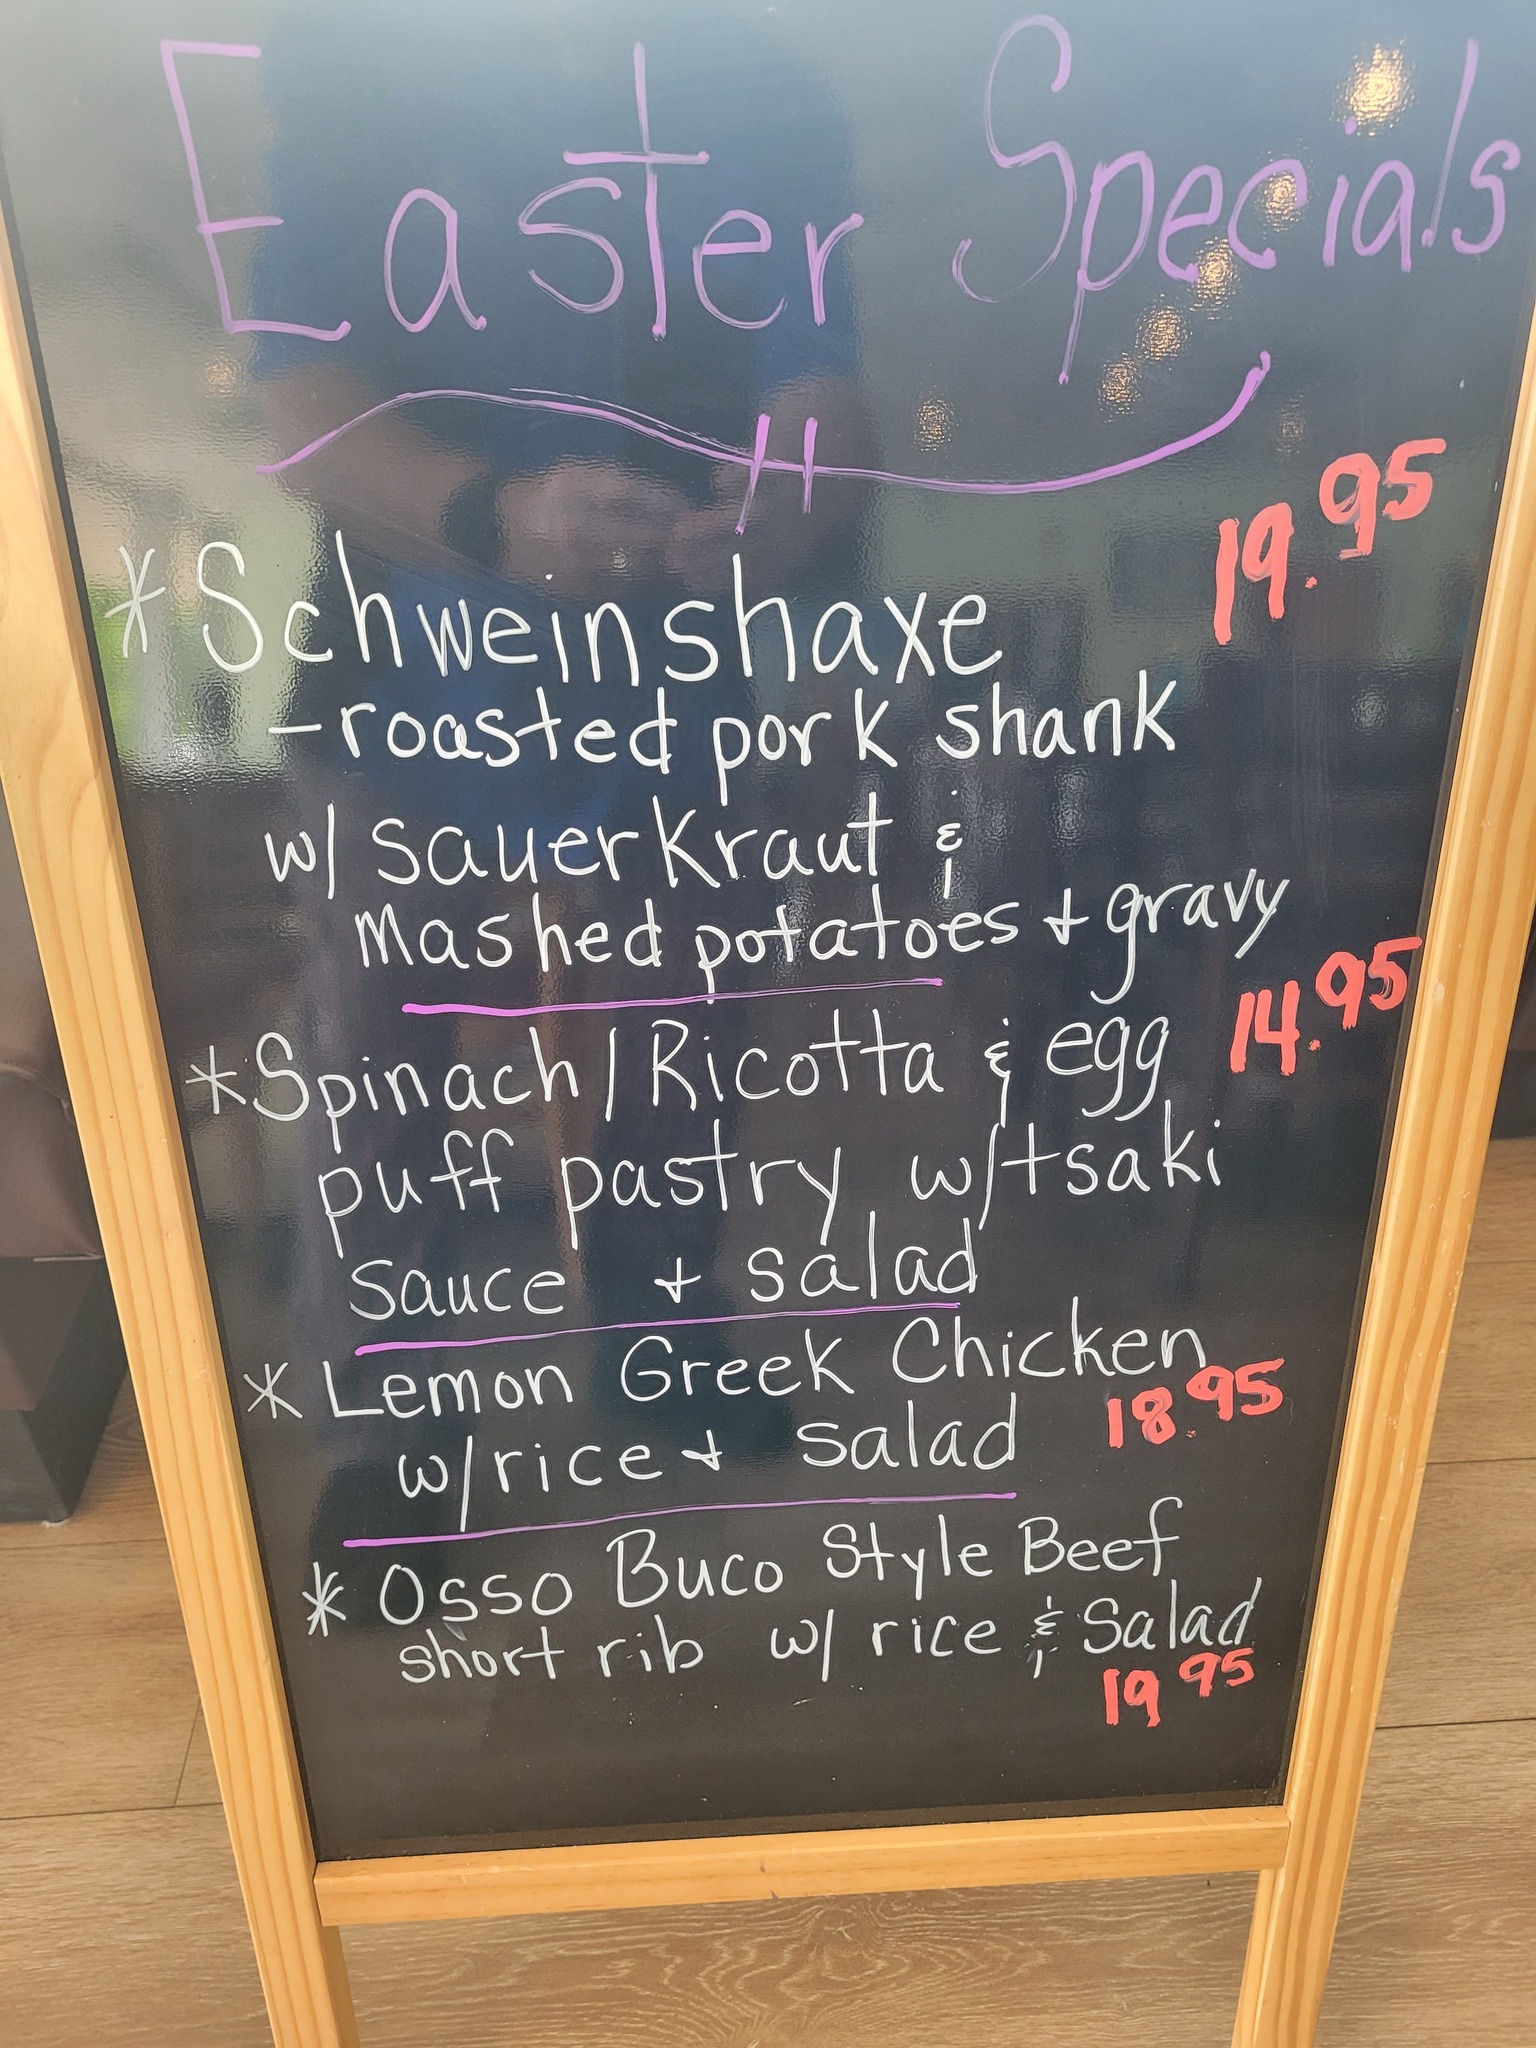 Easter Specials
*Schweinshaxe 19.95
-roasted pork shank
w/ sauerkraut &
mashed potatoes + gravy
*Spinach/Ricotta & egg 14.95
puff pastry w/tsaki
sauce + salad
*Lemon Greek Chicken
w/rice + salad 18.95
*Osso Buco Style Beef
short rib w/ rice & Salad
19 95